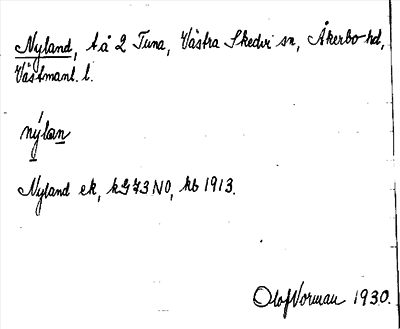 Nyland, t å 2 Tuna, Västra Skedvi sn, Åkerbo hd,
Västmanl. l.
nýlan
Nyland ek, kG 73 NO, hb 1913.
Olof Norman 1930.